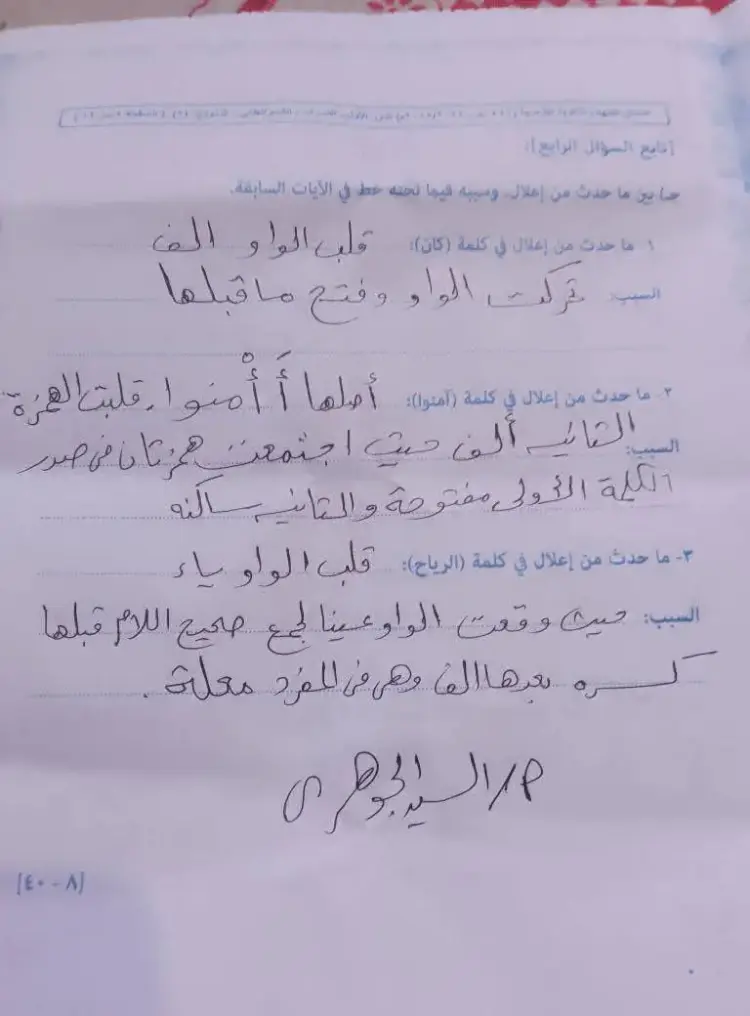 [تابع السؤال الرابع]:
جـ) بين ما حدث من إعلال، وسببه فيما تحته خط في الآيات السابقة.
١- ما حدث من إعلال في كلمة (كان): قلب الواو الف
السبب: تحركت الواو وفتح ما قبلها
٢- ما حدث من إعلال في كلمة (آمنوا): أصلها أَأْمنوا. قلبت الهمزة
الثانيه ألف حيث اجتمعت همزتان فى صدر
السبب:
الكلمة الأولى مفتوحة والثانيه ساكنه
٣- ما حدث من إعلال في كلمة (الرياح): قلب الواو ياء
السبب: حيث وقعت الواو عينا لجمع صحيح اللام قبلها
كسره بعدها الف وهى فى المفرد معلة.
السيد الجوهرى
[٨ - ٤٠]